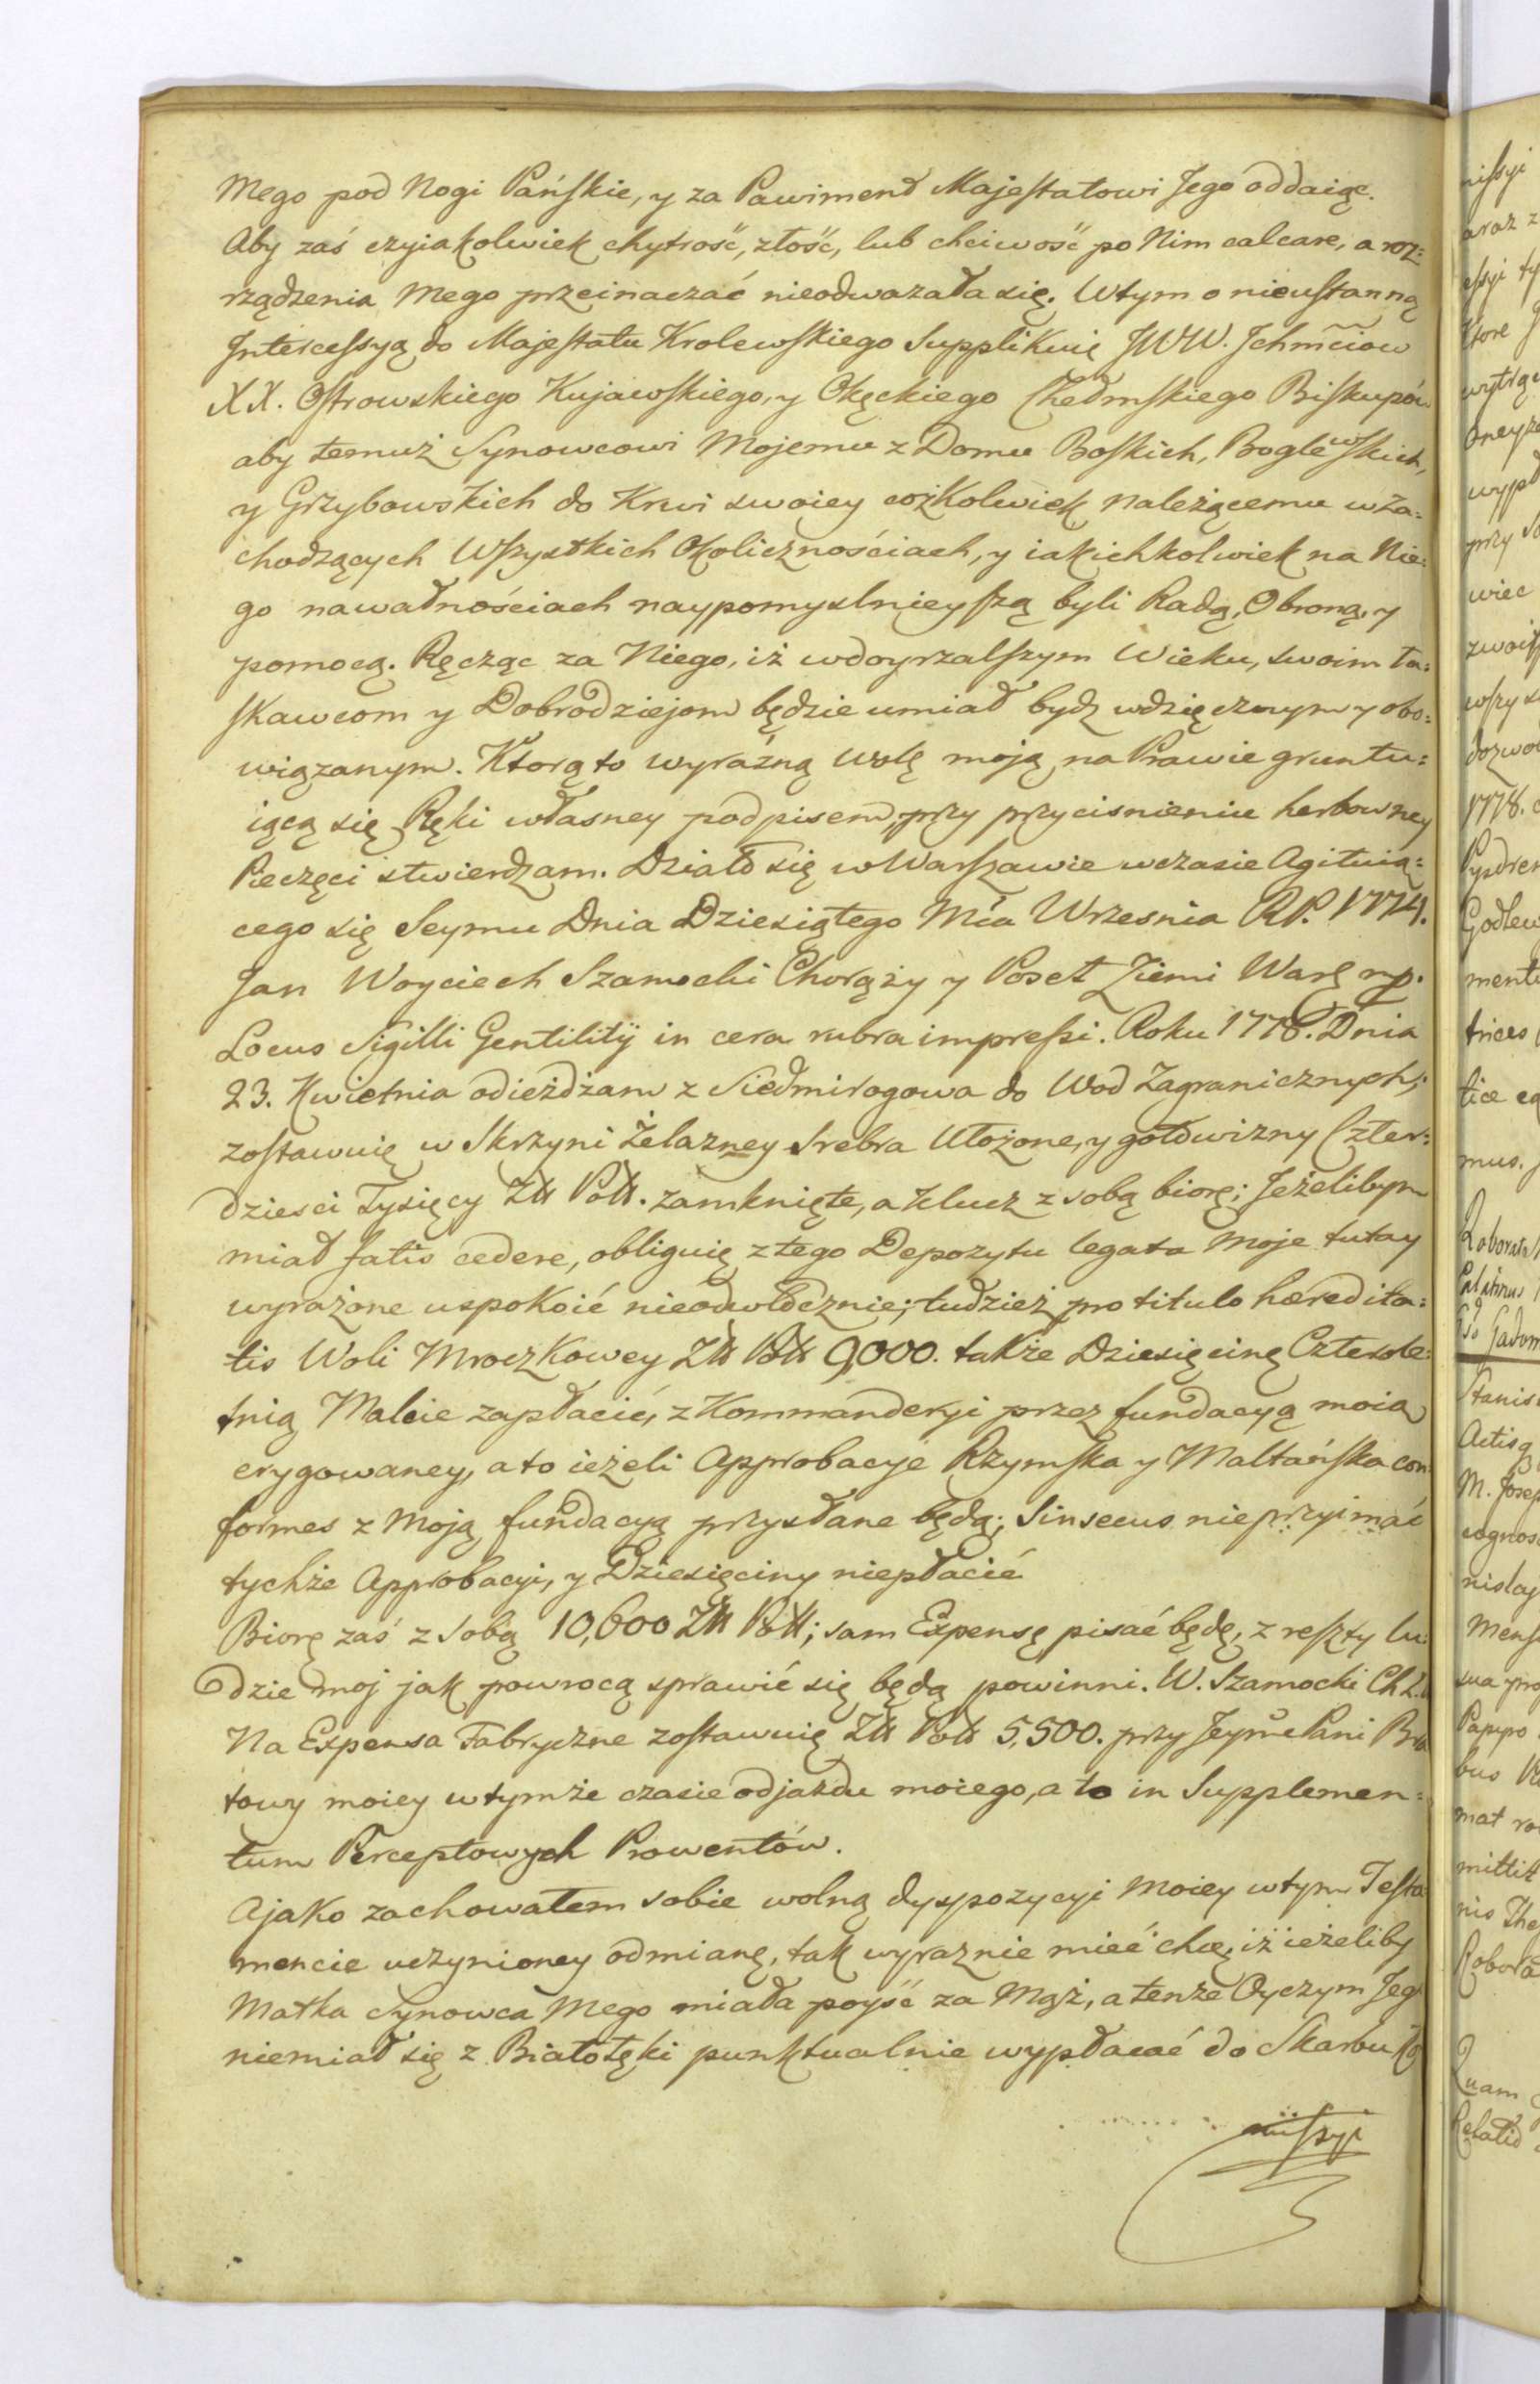 Mego pod Nogi Pańskie, y za Pawiment Majestatowi Jego oddaię.
Aby zaś czyiakolwiek chytrość, złość, lub chciwość po Nim calcare, a roz=
rządzenia Mego przeinaczać nieodwazała się. W tym o nieustanną
Intercessyą do Majestatu Krolewskiego Supplikuię JWW. Jchmciow
XX. Ostrowskiego Kujawskiego, y Okęckiego Chełmskiego Biskupów
aby temuż Synowcowi Mojemu z Domu Boskich, Boglewskich,
y Grzybowskich do Krwi swoiey cożkolwiek należącemu w za=
chodzących Wszystkich Okolicznościach, y iakichkolwiek na Nie=
go nawałnościach naypomyslnieyszą byli Radą, Obroną, y
pomocą. Ręcząc za Niego, iż w doyrzalszym Wieku, swoim ła=
skawcom y Dobrodziejom będzie umiał bydz wdzięcznym y obo=
wiązanym. Ktorą to wyraźną wolę moją na Prawie gruntu=
iącą się Ręki własney podpisem, przy przycisnieniu herbowney
Pieczęci stwierdzam. Działo się w Warszawie w czasie Agituią=
cego się Seymu Dnia Dziesiątego Mca Wrzesnia RP. 1774.
Jan Woyciech Szamocki Chorąży y Poseł Ziemi Warś mp.
Locus Sigilli Gentilitÿ in cera rubra impressi. Roku 1778. Dnia
23. Kwietnia odieżdzam z Siedmirogowa do Wod Zagranicznych;
zostawuię w Skrzyni Żelazney Srebra Ułożone, y gotowizny Czter=
dziesci Tysięcy Złł Poll. zamknięte, a klucz z sobą biorę; Jeżelibym
miał fatis cedere, obliguię z tego Depozytu legata moje tutay
wyrażone uspokoić nieodwłocznie; tudzież pro titulo hæredita=
tis Woli Mroczkowey Złł Poll 9,000. także Dziesięcinę Czterole=
tnią Malcie zapłacić, z Kommanderyi przez fundacyą moią
erygowaney, a to ieżeli Approbacye Rzymska y Maltańska con
formes z Moją fundacyą przysłane będą; Sinsecus nieprzyimać
tychże Approbacyi, y Dziesięciny niepłacić
Biorę zaś z sobą 10,600 Złł Poll; sam Expensę pisać będę, z reszty lu=
dzie moj jak powrocą sprawić się będą powinni. W. Szamocki Ch Z.
Na Expensa Fabryczne zostawuię Złł Poll 5,500. przy Jeymć Pani Bra
towy moiey w tymże czasie odjazdu moiego, a to in Supplemen=
tum Perceptowych Prowentów.
A jako zachowałem sobie wolną dyspozycyi moiey w tym Testa
mencie uczynioney odmianę, tak wyraznie mieć chcę, iż ieżeliby
Matka Synowca Mego miała poyść za Mąż, a tenże Oyczym Jeg
niemiał się z Białołęki punktualnie wypłacać do Skarbu Ko
missyi